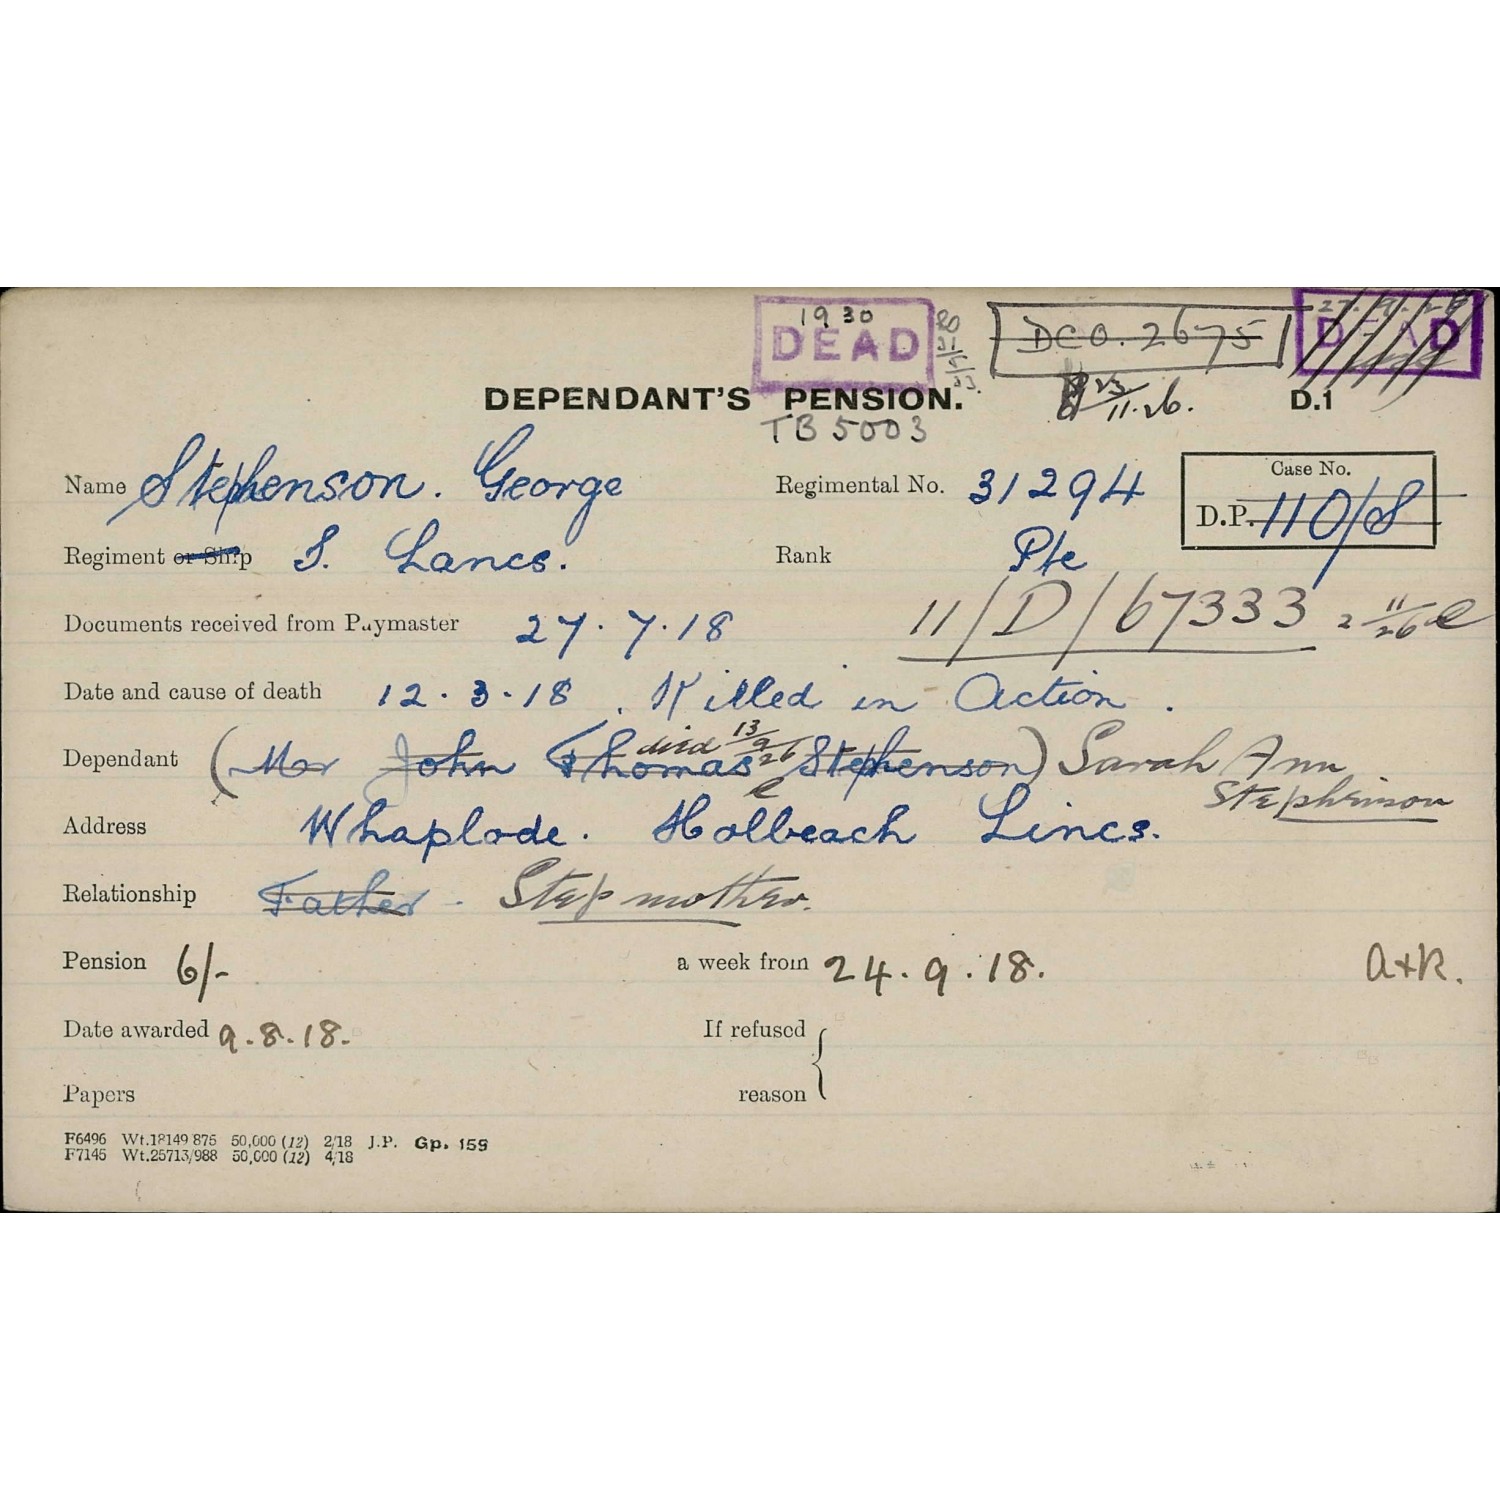 1930
DEAD
DCO. 2675
27.9.26
DEAD
DEPENDANT'S PENSION.
23/11.26.
D.1
TB 5003
Name Stephenson. George
Regimental No. 31294
Case No.
D.P. 110/S
Regiment or Ship S. Lancs.
Rank Pte
11/D/67333 2 11/26 C
Documents received from Paymaster 27.7.18
Date and cause of death 12.3.18. Killed in Action.
died 13/9/26
Dependant (Mr John Thomas Stephenson) Sarah Ann
Stephenson
Address Whaplode. Holbeach Lincs.
Relationship Father - Step mother.
Pension 6/- a week from 24.9.18. A+R.
Date awarded 9.8.18. If refused
Papers reason
F6496 Wt.18149 875 50,000 (12) 2/18 J.P. Gp. 159
F7145 Wt.25713/988 50,000 (12) 4/18